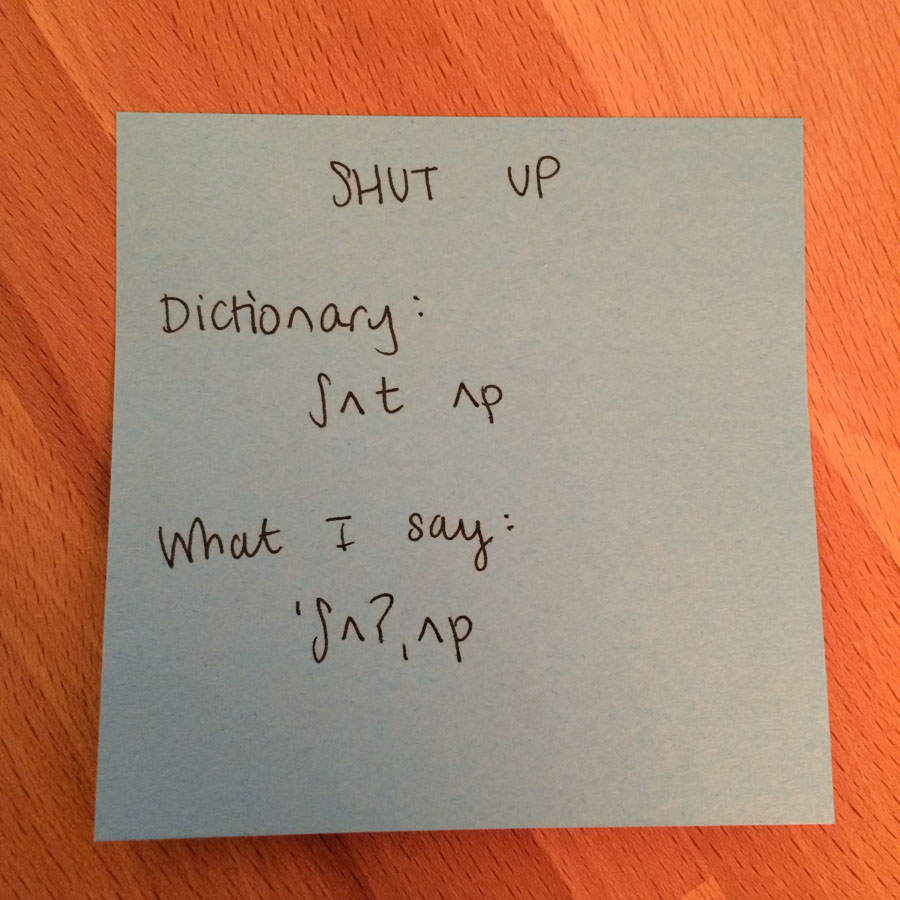 SHUT UP
Dictionary:
ʃʌt ʌp
What I say:
ˈʃʌʔˌʌp